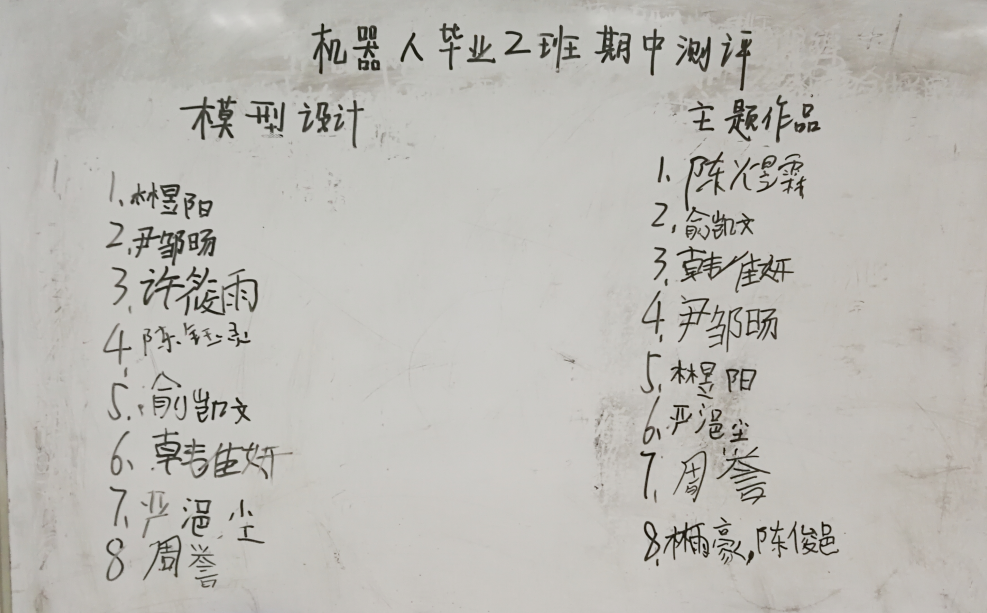 机器人毕业2班期中测评
模型设计
1. 林昱阳
2. 尹邹旸
3. 许筱雨
4. 陈钰录
5. 俞凯文
6. 韩佳妍
7. 严浥尘
8 周誉
主题作品
1、陈煜霖
2、俞凯文
3、韩佳妍
4、尹邹旸
5、林昱阳
6、严浥尘
7、周誉
8、林雨豪,陈俊邑